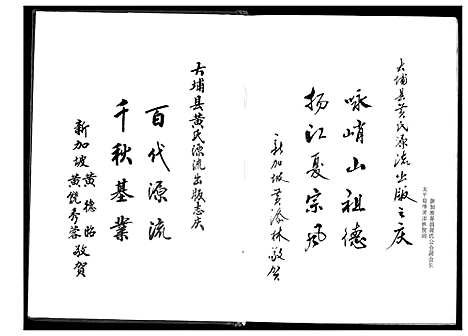 大埔县黄氏源流出版之庆
咏峭山祖德
扬江夏宗风
新加坡黄添林敬贺
大埔县黄氏源流出版志庆
百代源流
千秋基業
新加坡
黄德昭
黄饶秀蓉
敬賀